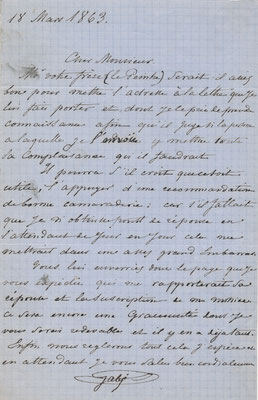 18 Mars 1863.
Cher Monsieur
Mr votre frère (le Peintre) serait s assez
bon pour mettre l'adresse à la lettre que je
lui fais porter et dont je le prie de prendre
connaissance afin qu'il juge si la personne
a laquelle je l'envoie y mettre toute
la complaisance qu'il faudrait.
Il pourra s'il croit que ce soit
utile, l'appuyer d'une recommandation
de bonne camaraderie; car s'il fallait
que je n'obtinsse point de réponse en
l'attendant de jour en jour cela me
mettrait dans un assez grand embarras.
Vous lui enverriez donc le page que je
vous expédie qui me rapporterait sa
réponse et la suscription de ma missive
Ce sera encore une gracieuseté dont je
vous serais redevable et il y en a déjà tant.
Enfin nous reglerons tout cela j'espère et
en attendant je vous salue bien cordialement